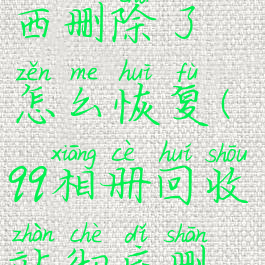 西删除了
zěn me huī fù
怎么恢复(
xiāng cè huí shōu
99相册回收
zhàn chè dǐ shān
站彻底删